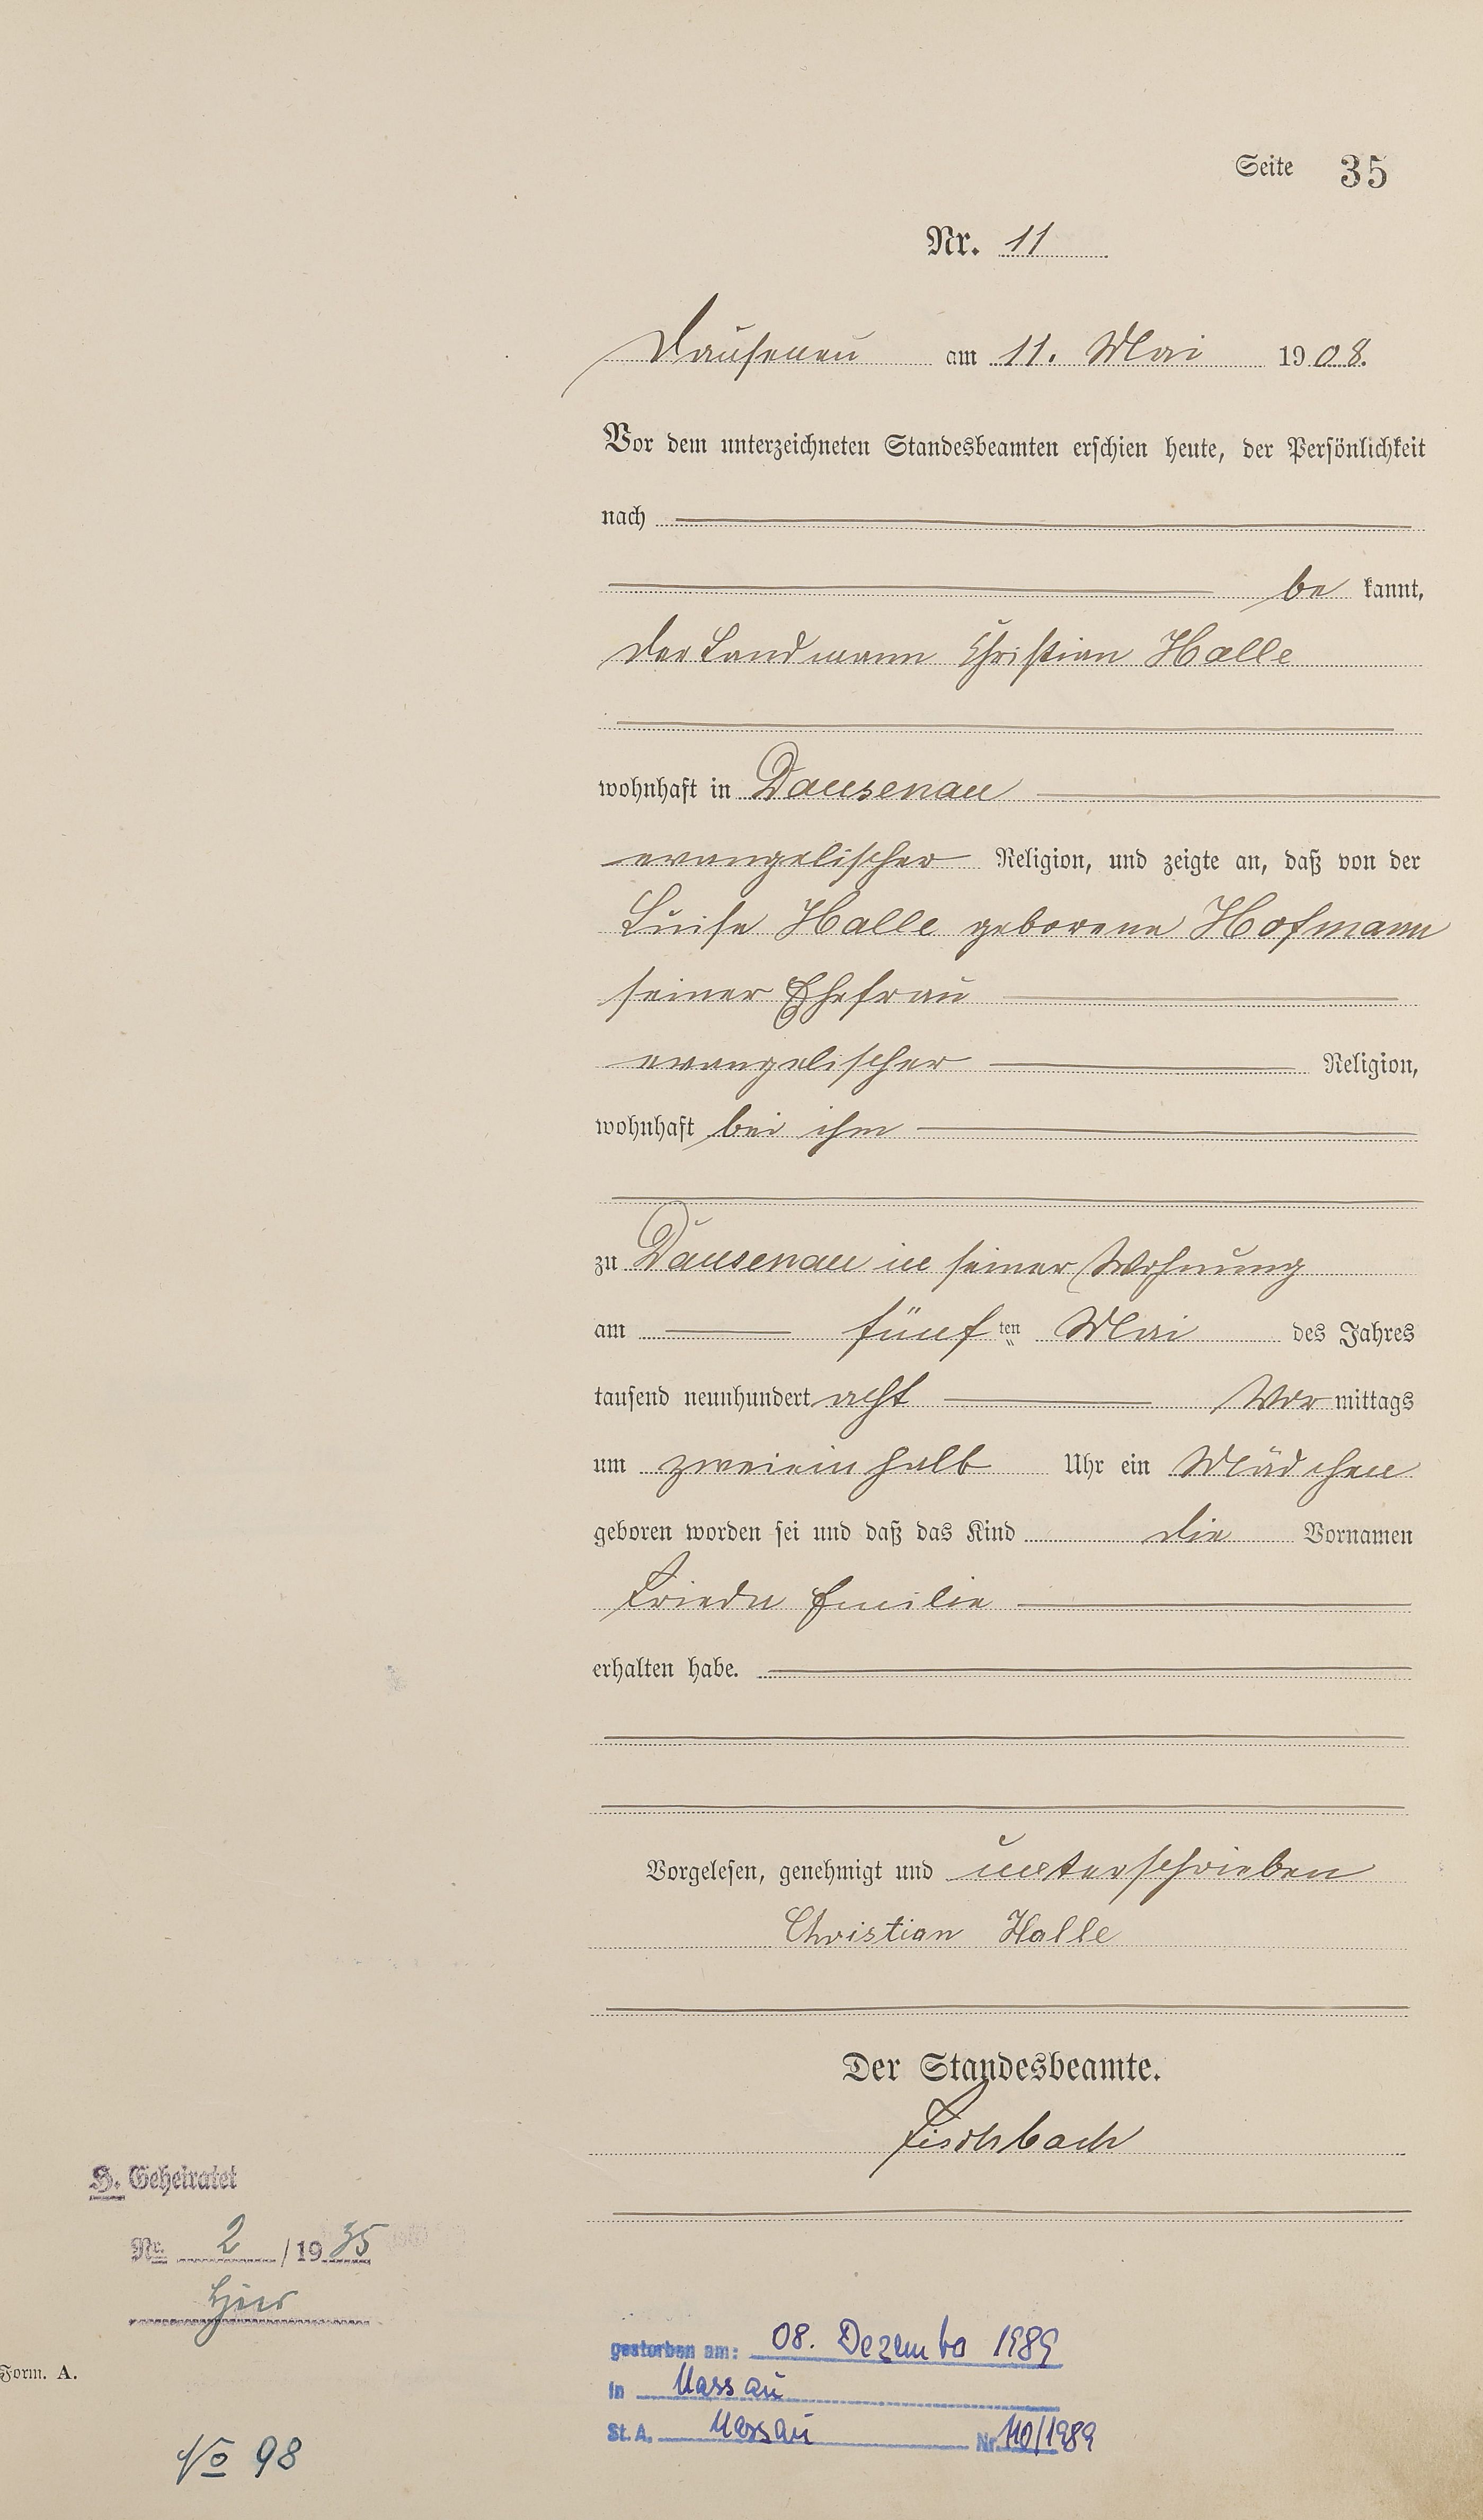 Seite 35
Nr. 11
Dausenau am 11. Mai 1908.
Vor dem unterzeichneten Standesbeamten erschien heute, der Persönlichkeit
nach
be kannt,
der Landmann Christian Halle
wohnhaft in Dausenau
evangelischer Religion, und zeigte an, daß von der
Luise Halle geborene Hofmann
seiner Ehefrau
evangelischer Religion,
wohnhaft bei ihm
zu Dausenau in seiner Wohnung
am fünf ten Mai des Jahres
tausend neunhundert acht Vor mittags
um zweieinhalb Uhr ein Mädchen
geboren worden sei und daß das Kind die Vornamen
Frieda Emilie
erhalten habe.
Vorgelesen, genehmigt und unterschrieben
Christian Halle
Der Standesbeamte.
Fischbach
H. Geheiratet
Nr. 2 / 1935
hier
gestorben am: 08. Dezember 1989
in Nassau
St. A. Nassau Nr. 110/1989
Form. A.
No 98